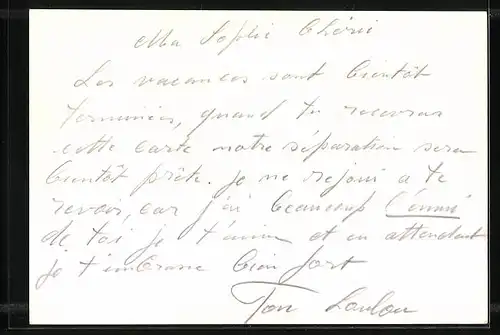 Ma Sophie Chérie
Les vacances sont bientôt
terminées, quand tu recevras
cette carte notre séparation sera
bientôt prête. Je me rejoui a te
revoir, car j'ai beaucoup l'ennui
de toi je t'aime et en attendant
je t'embrasse bien fort
Ton Loulou